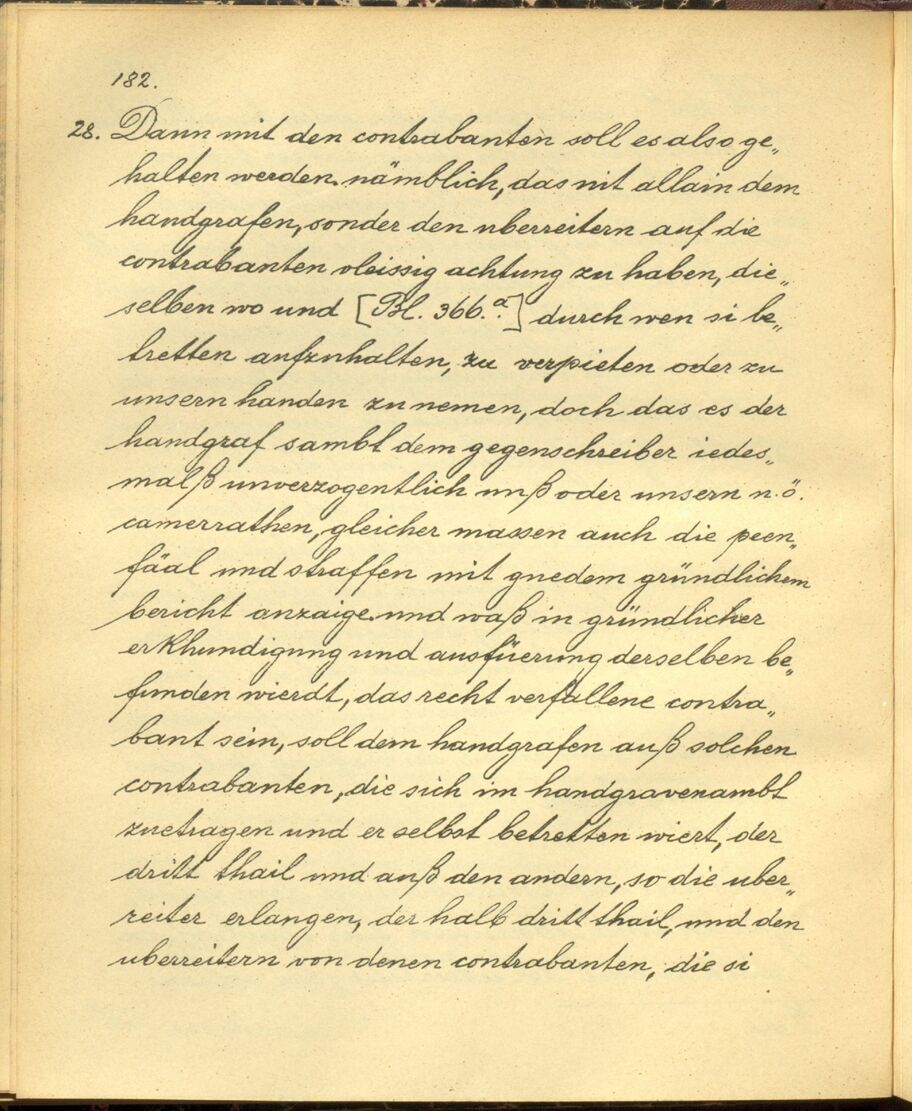 182.
28. Dann mit den contrabanten soll es also ge„
halten werden. nämblich, das nit allain dem
handgrafen, sonder den uberreitern auf die
contrabanten vleissig achtung zu haben, die„
selben wo und [Bl. 366.a] durch wen si be„
tretten aufzuhalten, zu verpieten oder zu
unsern handen zu nemen, doch das es der
handgraf sambt dem gegenschreiber iedes„
malß unverzogentlich unß oder unsern n.ö.
camerrathen, gleicher massen auch die peen„
fäal und straffen mit gnedem gründlichem
bericht anzaige. und waß in gründlicher
erkhundigung und ausfüerung derselben be„
funden wierdt, das recht verfallene contra„
bant sein, soll dem handgrafen auß solchen
contrabanten, die sich im handgravenambt
zuetragen und er selbst betretten wiert, der
dritt thail und auß den andern, so die uber„
reiter erlangen, der halb dritt thail, und den
uberreitern von denen contrabanten, die si